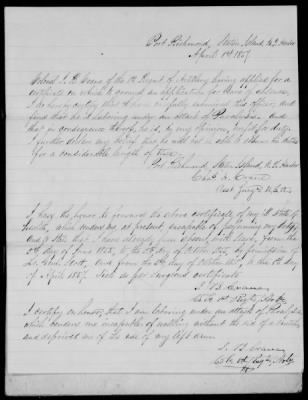 Port Richmond, Staten Island, N.Y. Harbor
April 1st 1857.
Colonel I. B. Crane of the 1st Regent of Artillery having applied for a
certificate on which to ground an application for leave of absence,
I do hereby certify that I have carefully examined this officer, and
find that he is laboring under an attack of Paralysis. And
that in consequence thereof, he is, in my opinion, unfit for duty.
I further declare my belief that he will not be able to resume his duties
for a considerable length of time.
Port Richmond, Staten Island, N.Y. Harbor
Asst Surg'n U.S.A.
I have the honor to forward the above certificate of my ill state of
health, which renders me, at present, incapable of performing my duty;
and to state that I have already been absent with leave, from the
of June 1856, to the 5th of October 1856, by permission of
and from the 5th day of October 1856, to the 1st day
of April 1857. Sick as per surgeons certificate.
I. B. Crane
Col. 1st Reg't, Art'y.
I certify on honor, that I am laboring under an attack of Paralysis,
which renders me incapable of walking without the use of a
and deprived me of the use of my left arm.
I. B. Crane
Col. 1st Reg't, Art'y